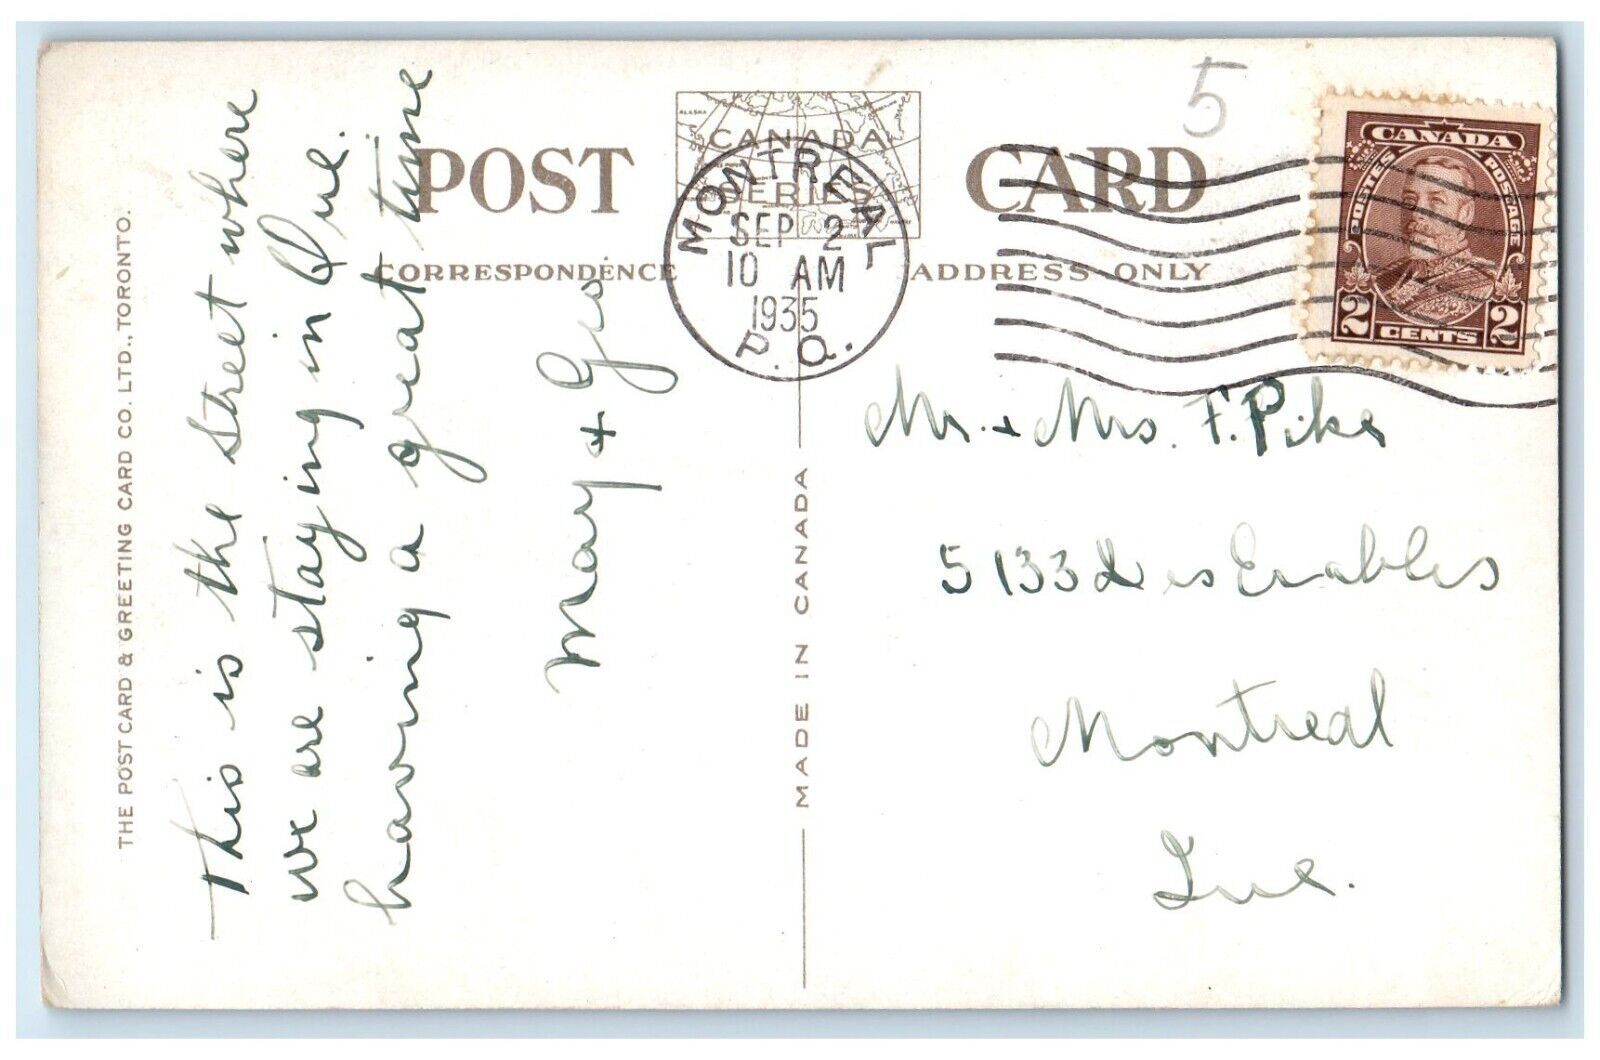 THE POST CARD & GREETING CARD CO. LTD., TORONTO.
This is the street where
we are staying in Que.
having a great time
May + Geo
POST CARD
CANADA
SERIES
CORRESPONDENCE
ADDRESS ONLY
MONTREAL
SEP 2
10 AM
1935
P.Q.
5
CANADA
POSTES POSTAGE
2 CENTS 2
MADE IN CANADA
Mr. + Mrs. F. Pike
5133 Des Erables
Montreal
Que.